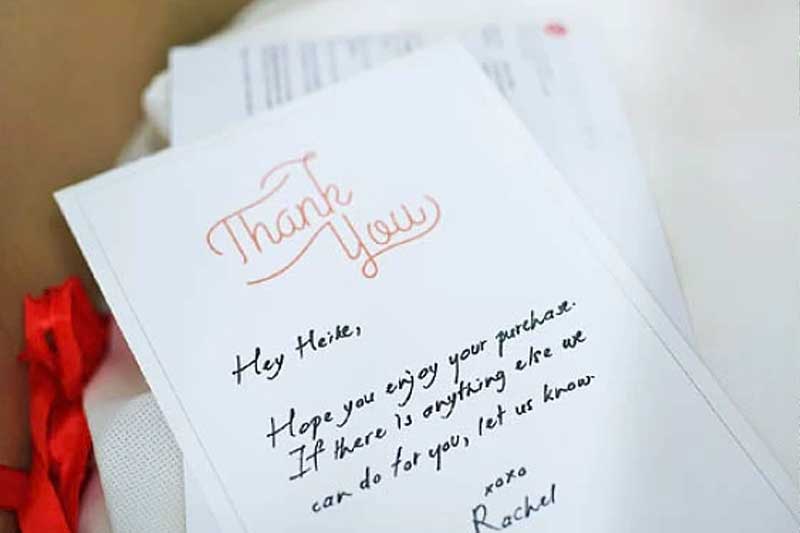 Thank
You
Hey Heike,
Hope you enjoy your purchase.
If there is anything else we
can do for you, let us know.
xoxo
Rachel